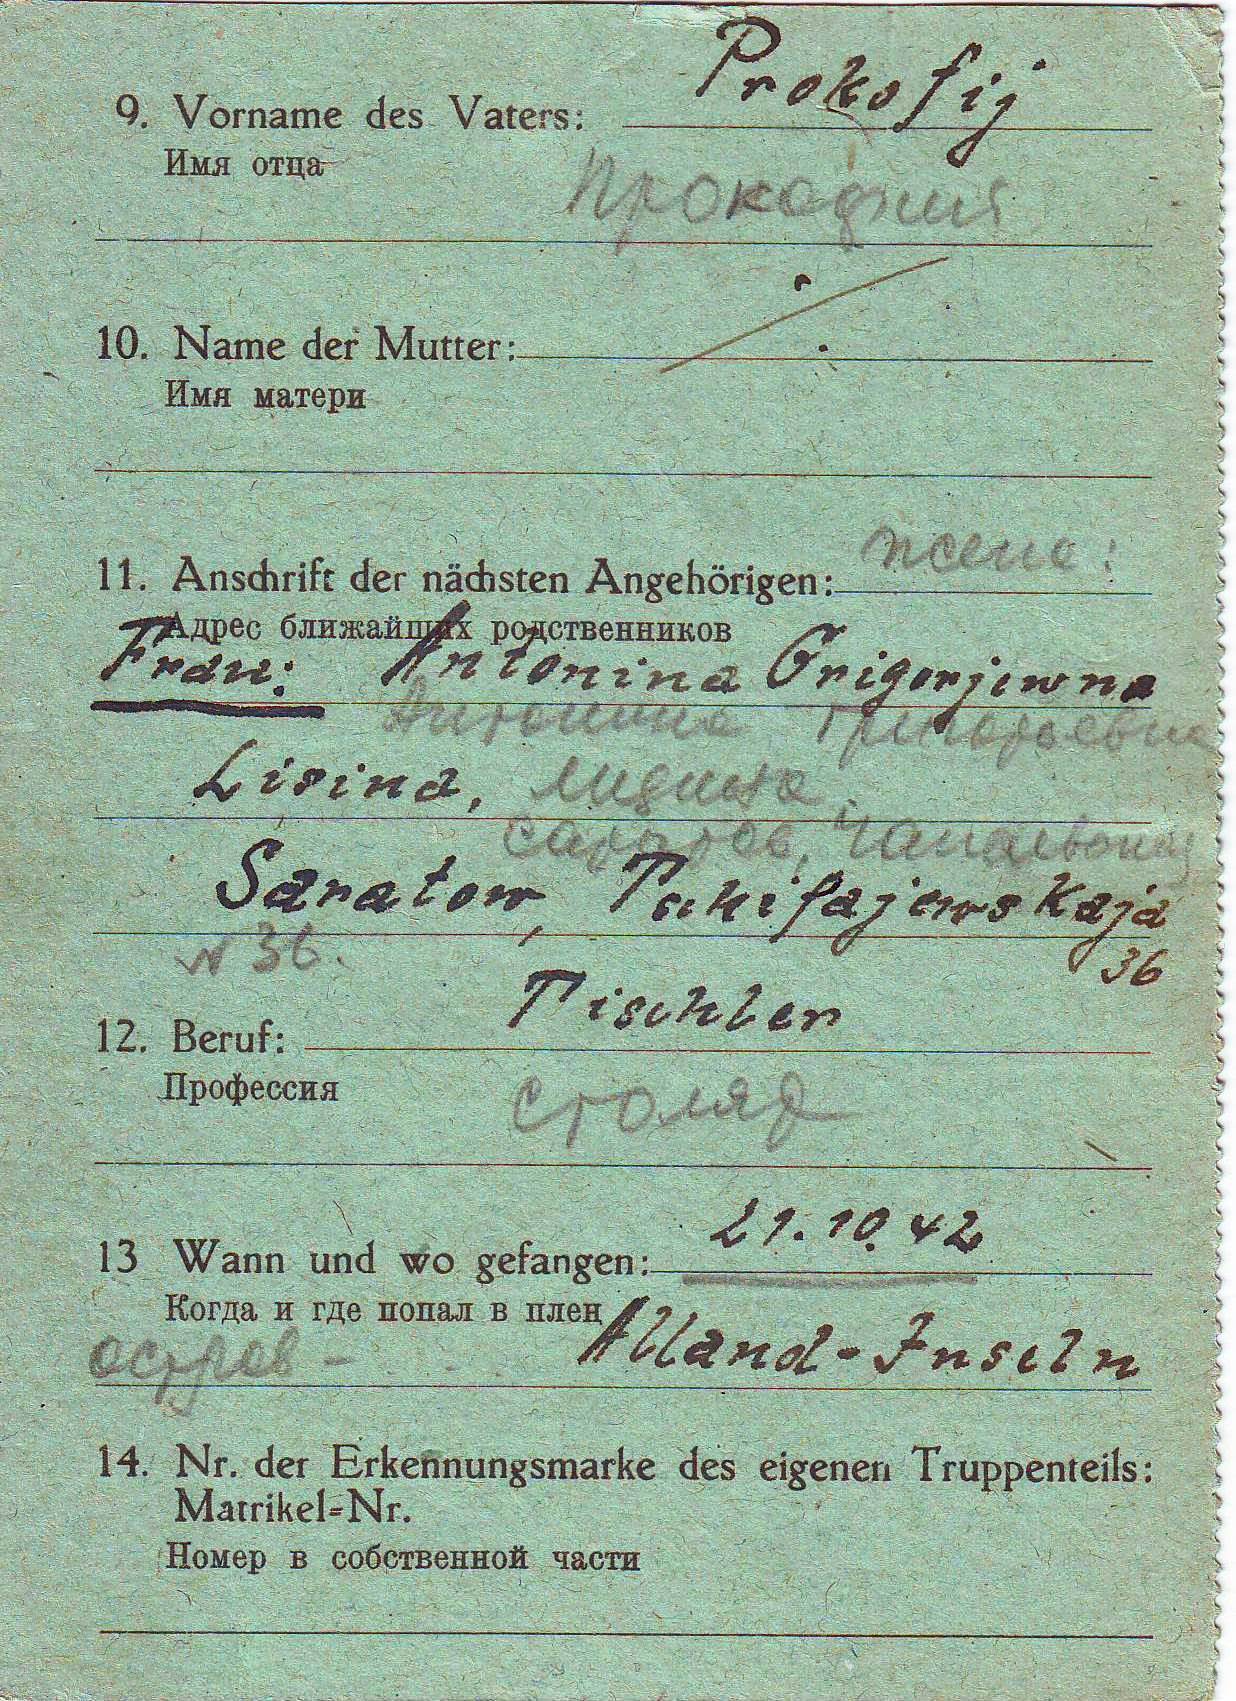 9. Vorname des Vaters: Prokofij
Имя отца
Прокофий
10. Name der Mutter:
Имя матери
11. Anschrift der nächsten Angehörigen: жена:
Адрес ближайших родственников
Frau: Antonina Grigorjewna
Антонина Григорьевна
Lisina,
Саратов,
Saratow,
N 36. 36
Tischler
12. Beruf:
Профессия
столяр
13 Wann und wo gefangen: 21.10.42
Когда и где попал в плен
остров - Alland-Inseln
14. Nr. der Erkennungsmarke des eigenen Truppenteils:
Matrikel-Nr.
Номер в собственной части